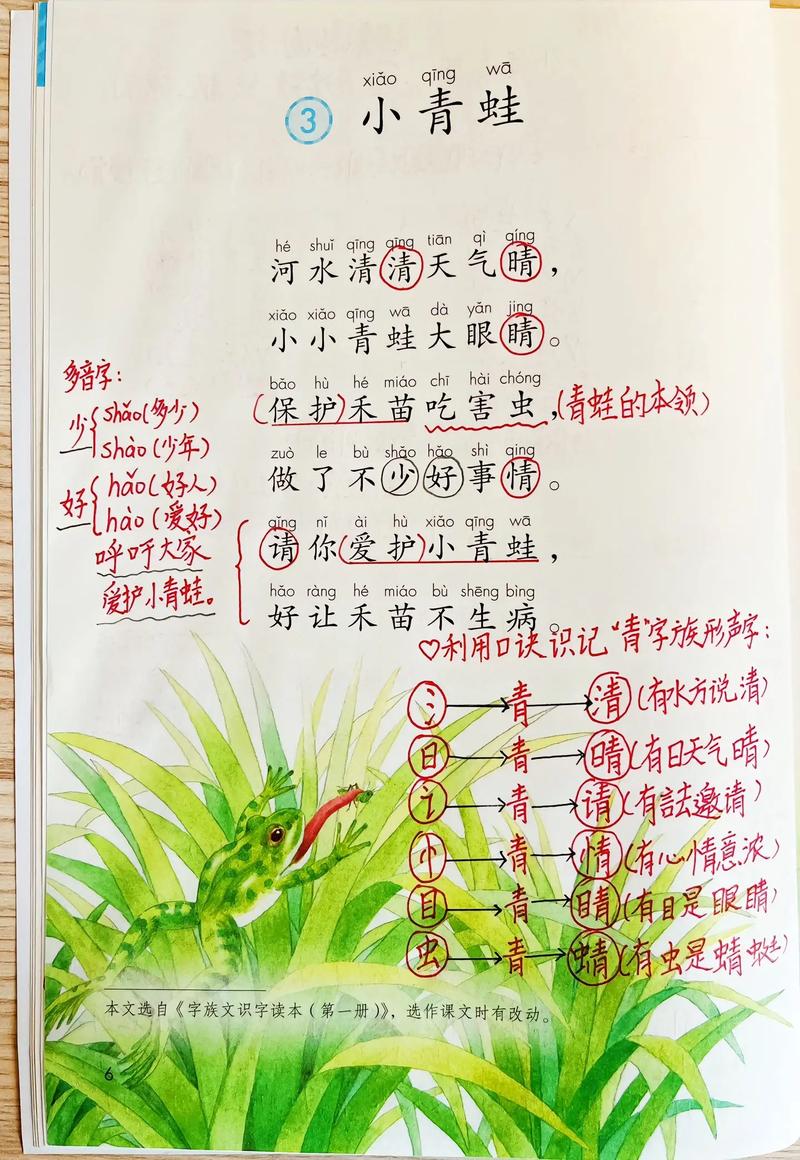 xiǎo qīng wā
3 小青蛙
hé shuǐ qīng qīng tiān qì qíng
河水清清天气晴，
xiǎo xiǎo qīng wā dà yǎn jing
小小青蛙大眼睛。
bǎo hù hé miáo chī hài chóng
(保护)禾苗吃害虫，(青蛙的本领)
zuò le bù shǎo hǎo shì qing
做了不少好事情。
qǐng nǐ ài hù xiǎo qīng wā
请你(爱护)小青蛙，
hǎo ràng hé miáo bù shēng bìng
好让禾苗不生病。
多音字：
少 shǎo(多少)
shào(少年)
好 hǎo(好人)
hào(爱好)
呼吁大家
爱护小青蛙。
♡利用口诀识记“青”字族形声字：
氵→青→清(有水方说清)
日→青→晴(有日天气晴)
讠→青→请(有言去邀请)
忄→青→情(有心情意浓)
目→青→睛(有目是眼睛)
虫→青→蜻(有虫是蜻蜓)
本文选自《字族文识字读本（第一册）》，选作课文时有改动。
6